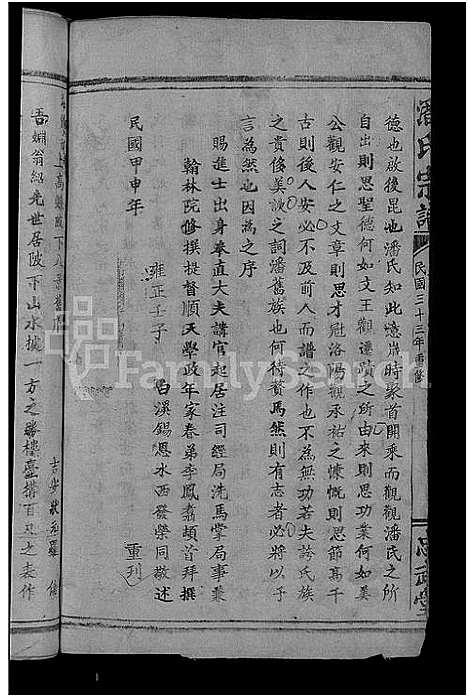 潘氏宗譜
民國三十三年重修
忠武堂
德也啟後昆也潘氏知此憶岸時聚首開乘而觀觀潘氏之所
自出則思聖德何如文王觀遷蹟之所由來則思功業何如姜
公觀安仁之文章則思才冠洛陽觀承祐之慷慨則思節高千
古則後人安必不及前人而譜之作也不為無功若夫誇氏族
之貴侈美談之詞潘舊族也何待贅焉然則有志者必將以予
言為然也因為之序
賜進士出身奉直大夫講官起居注司經局洗馬掌局事兼
翰林院修撰提督順天學政年家眷弟李鳳翥頓首拜撰
雍正壬子
白溪錫恩水西發榮同敬述
民國甲申年
重刊
上高
吉安狀元羅
翁紹先世居陂下山水據一方之勝樓臺搆百尺之表作
FamilySearch